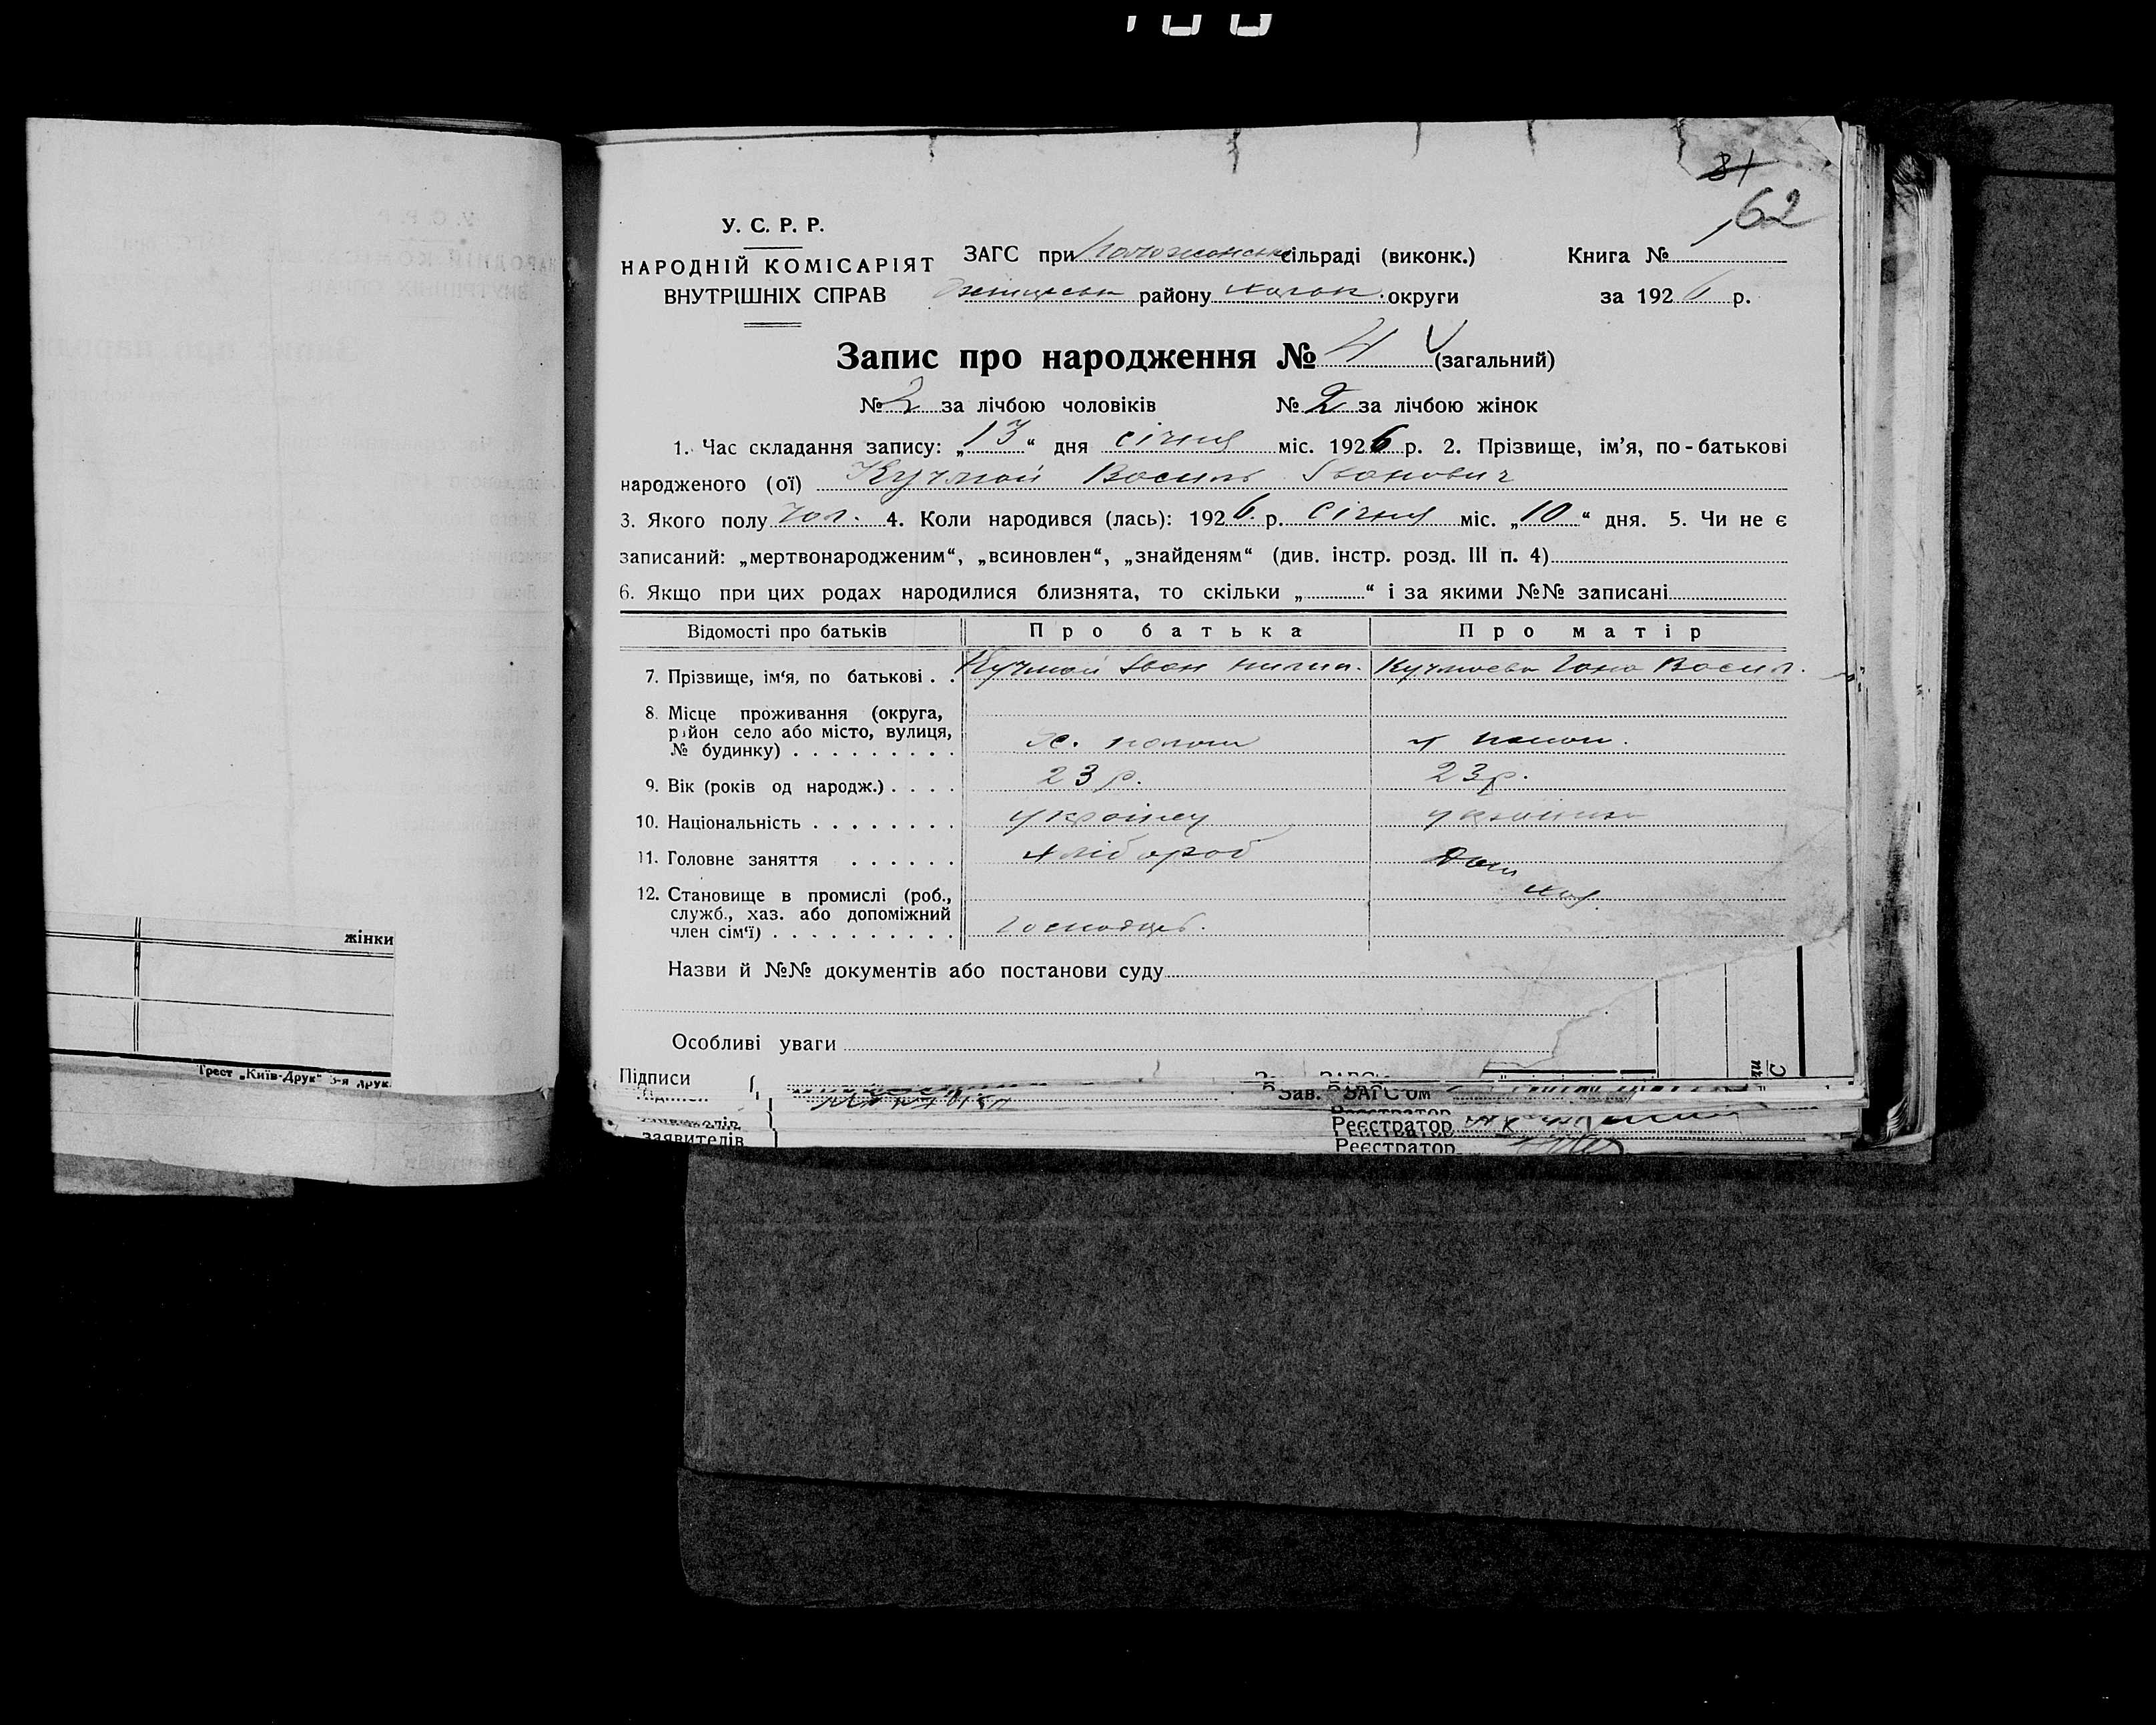 31
62
У. С. Р. Р.
НАРОДНІЙ КОМІСАРІЯТ
ВНУТРІШНІХ СПРАВ
ЗАГС при сільраді (виконк.)
району округи
Книга №
за 1926 р.
Запис про народження № 4 (загальний)
№ 2 за лічбою чоловіків № 2 за лічбою жінок
1. Час складання запису: „13“ дня січня міс. 1926 р. 2. Прізвище, ім’я, по-батькові
народженого (ої) Кучмай Василь Іванович
3. Якого полу чол. 4. Коли народився (лась): 1926 р. Січня міс. „10“ дня. 5. Чи не є
записаний: „мертвонародженим“, „всиновлен“, „знайденям“ (див. інстр. розд. III п. 4)
6. Якщо при цих родах народилися близнята, то скільки „ “ і за якими №№ записані
Відомості про батьків Про батька Про матір
7. Прізвище, ім‘я, по батькові . . Кучмай Іван Кучмаева Васил.
8. Місце проживання (округа,
район село або місто, вулиця,
№ будинку) . . . . . . . . .
9. Вік (років од народж.) . . . . 23 р. 23 р.
10. Національність . . . . . . . . українец українка
11. Головне заняття . . . . . . хлібороб Дом
хаз.
12. Становище в промислі (роб.,
служб., хаз. або допоміжний
член сім‘ї) . . . . . . . . . .
Назви й №№ документів або постанови суду
Особливі уваги
Підписи
Зав. ЗАГС‘ом
Реєстратор
заявителів
Реєстратор
жінки
Трест „Київ-Друк“ 3-я друк.